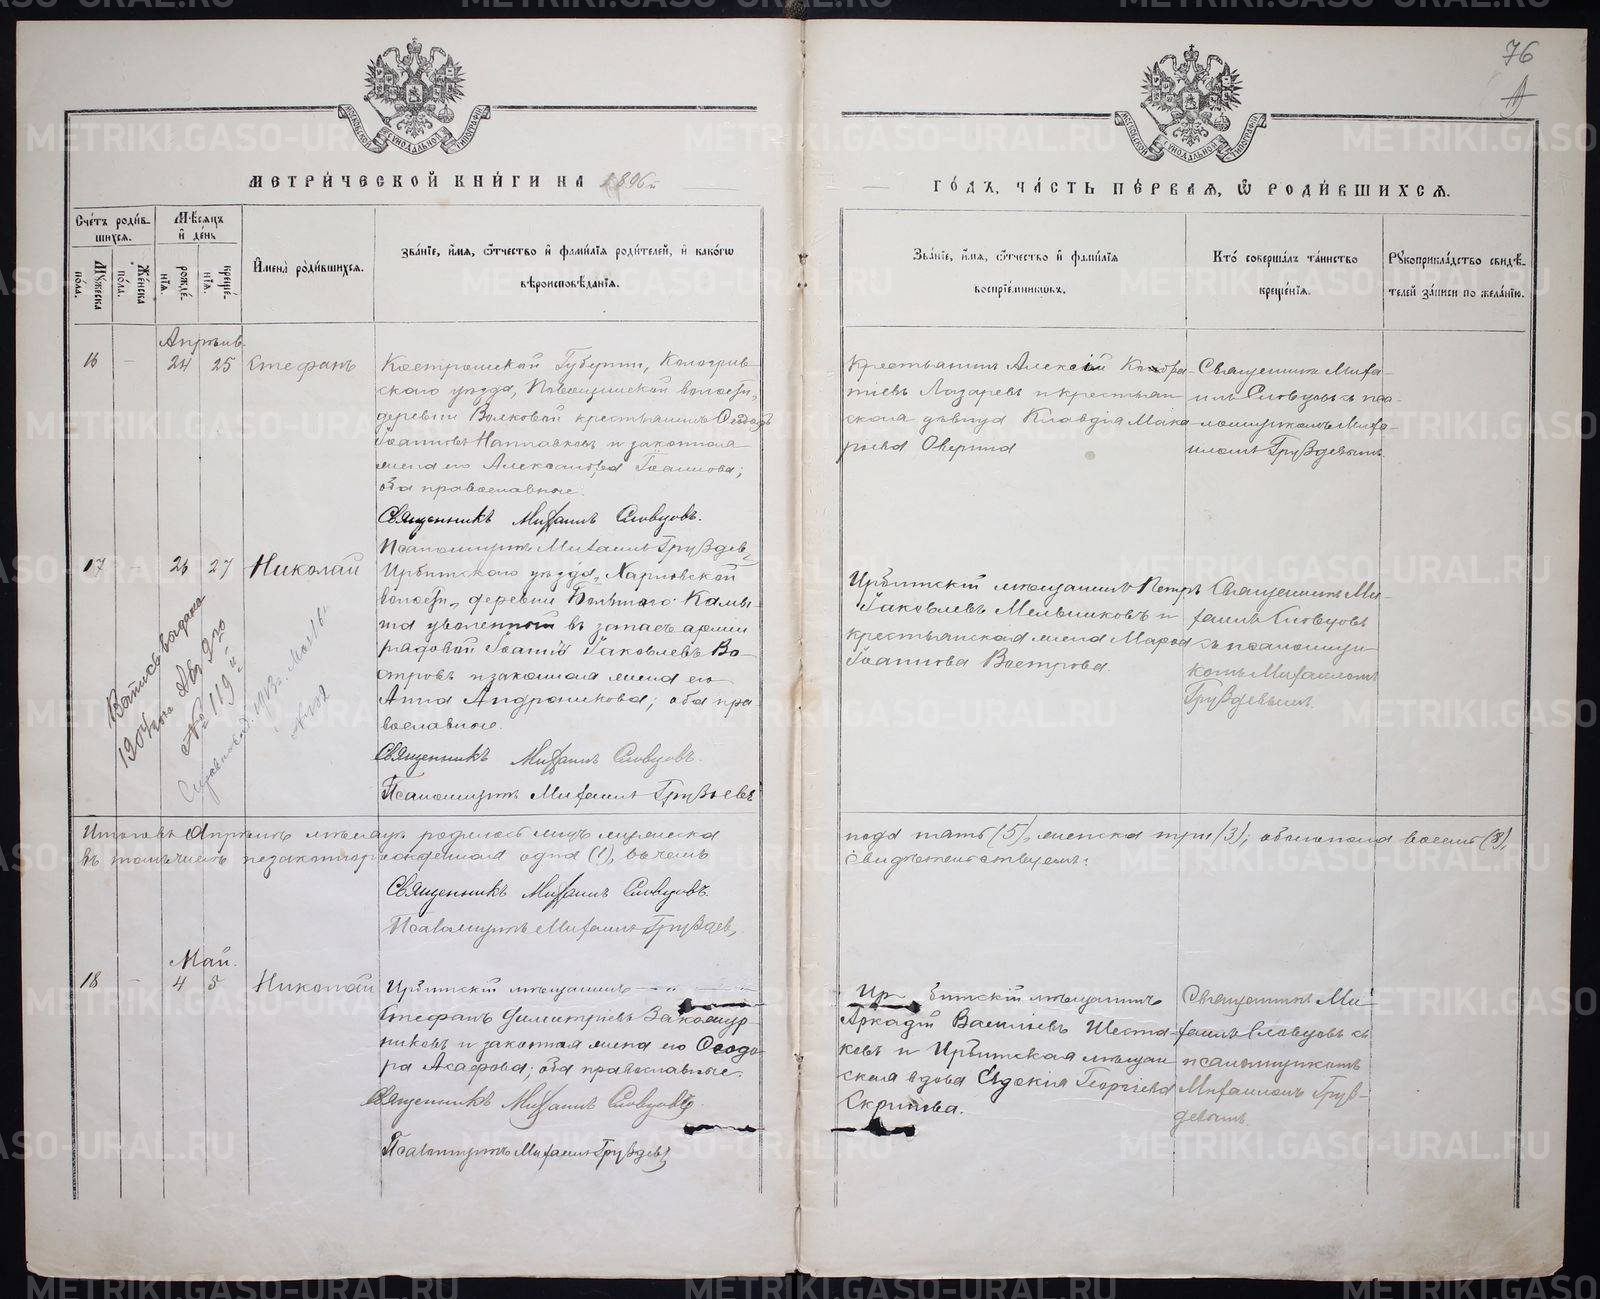 76
МОСКОВСКОЙ СѴНОДАЛЬНОЙ ТИПОГРАФІИ
МОСКОВСКОЙ СѴНОДАЛЬНОЙ ТИПОГРАФІИ
МЕТРИ́ЧЕСКОЙ КНИ́ГИ НА 1896й
ГО́ДЪ, ЧА́СТЬ ПЕ́РВАЯ, Ѡ РОДИ́ВШИХСЯ.
Сче́тъ роди́вшихся.
Му́жеска по́ла.
Же́нска по́ла.
Мѣ́сяцъ и де́нь
рожде́нія.
креще́нія.
И́мена роди́вшихся.
Зва́ніе, и́мя, о́тчество и фами́лія роди́телей, и како́гѡ
вѣроисповѣ́данія.
Зва́ніе, и́мя, о́тчество и фами́лія
воспріе́мниковъ.
Кто́ соверша́лъ та́инство
креще́нія.
Рукоприкла́дство свидѣ́-
телей за́писи по жела́нію.
Апрѣль
16 - 24 25 Стефанъ
Костромской Губерніи, Кологрив-
скаго уѣзда, волости,
деревни Волковой крестьянинъ Ѳеодоръ
Іоанновъ и законная
жена его Александра Іоаннова;
оба православные.
Священникъ Михаилъ Словцовъ.
Псаломщикъ Михаилъ Груздевъ
Крестьянинъ Алексій
Лазаревъ и крестьян-
ская дѣвица Клавдія Мака-
рьева Оверина
Священникъ Миха-
илъ Словцовъ съ пса-
ломщикомъ Миха-
иломъ Груздевымъ.
17 - 26 27 Николай
Ирбитскаго уѣзда, Харловской
волости, деревни Большого Камы-
ша уволенный въ запасъ арміи
рядовой Іоаннъ Іаковлевъ Во-
стровъ и законная жена его
Анна Андроникова; оба пра-
вославные.
Священникъ Михаилъ Словцовъ.
Псаломщикъ Михаилъ Груздевъ
1904 года Авг 9го
№ 119й
Ирбитскій мѣщанинъ Петръ
Іаковлевъ Мельниковъ и
крестьянская жена
Іоаннова Вострова.
Священникъ Ми-
хаилъ Словцовъ
съ псаломщи-
комъ Михаиломъ
Груздевымъ.
Итого въ Апрѣлѣ мѣсяцѣ родилось лицъ мужеска
пола пять (5), женска три (3); обоего пола восемь (8),
въ томъ числѣ незаконнорожденная одна (1), въ чемъ
свидѣтельствуемъ:
Священникъ Михаилъ Словцовъ.
Псаломщикъ Михаилъ Груздевъ
Май.
18 - 4 5 Николай
Ирбитскій мѣщанинъ
Стефанъ Димитріевъ Закожур-
никовъ и законная жена его Ѳеодо-
ра Асафова; оба православные.
Священникъ Михаилъ Словцовъ.
Псаломщикъ Михаилъ Груздевъ
Ирбитскій мѣщанинъ
Аркадій Васильевъ Шеста-
ковъ и Ирбитская мѣщан-
ская вдова Евдокія Георгіева
Скрипова.
Священникъ Ми-
хаилъ Словцовъ съ
псаломщикомъ
Михаиломъ Груз-
девымъ.
METRIKI.GASO-URAL.RU